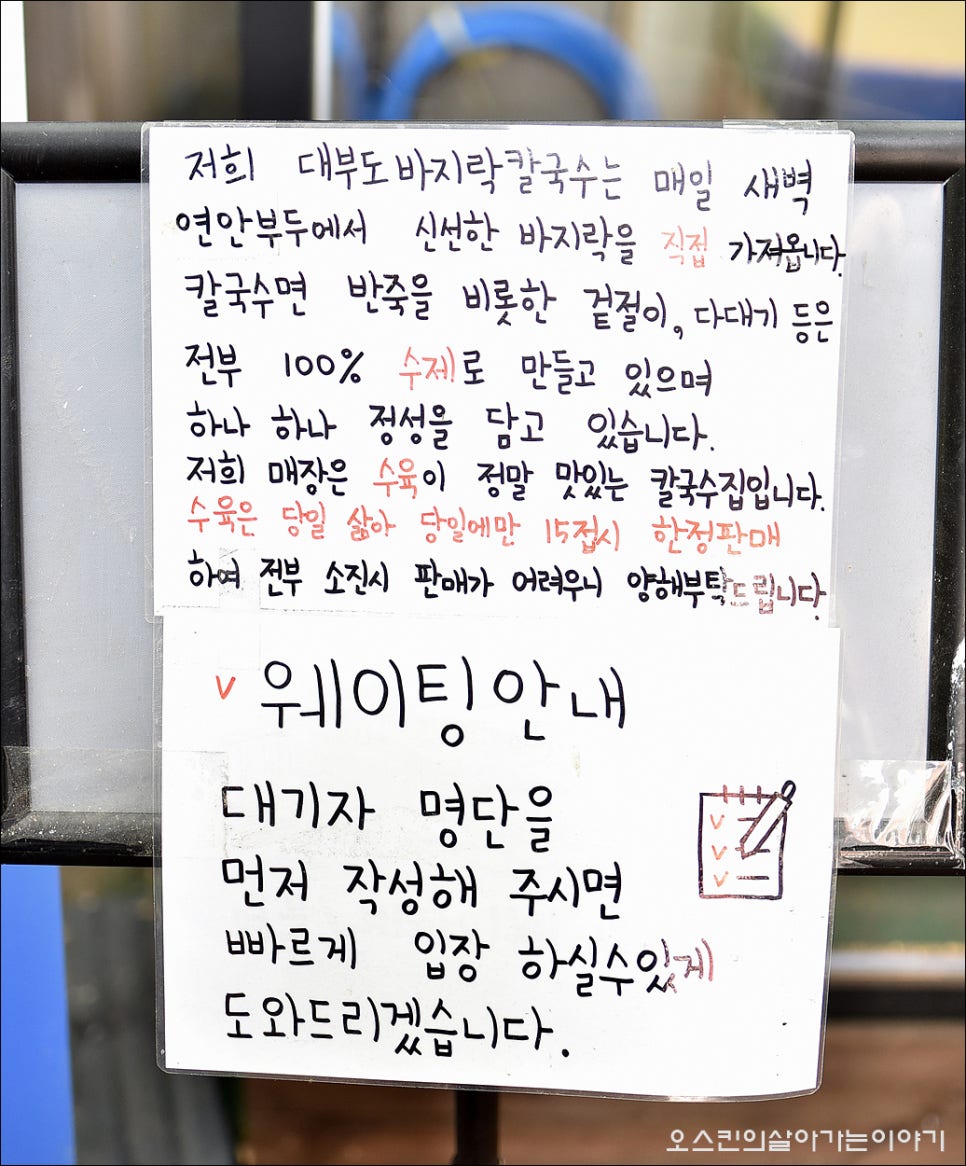 저희 대부도바지락칼국수는 매일 새벽
연안부두에서 신선한 바지락을 직접 가져옵니다.
칼국수면 반죽을 비롯한 겉절이, 다대기 등은
전부 100% 수제로 만들고 있으며
하나 하나 정성을 담고 있습니다.
저희 매장은 수육이 정말 맛있는 칼국수집입니다.
수육은 당일 삶아 당일에만 15접시 한정판매
하여 전부 소진시 판매가 어려우니 양해부탁드립니다.
v 웨이팅안내
대기자 명단을
먼저 작성해 주시면
빠르게 입장 하실수있게
도와드리겠습니다.
오스킨의살아가는이야기